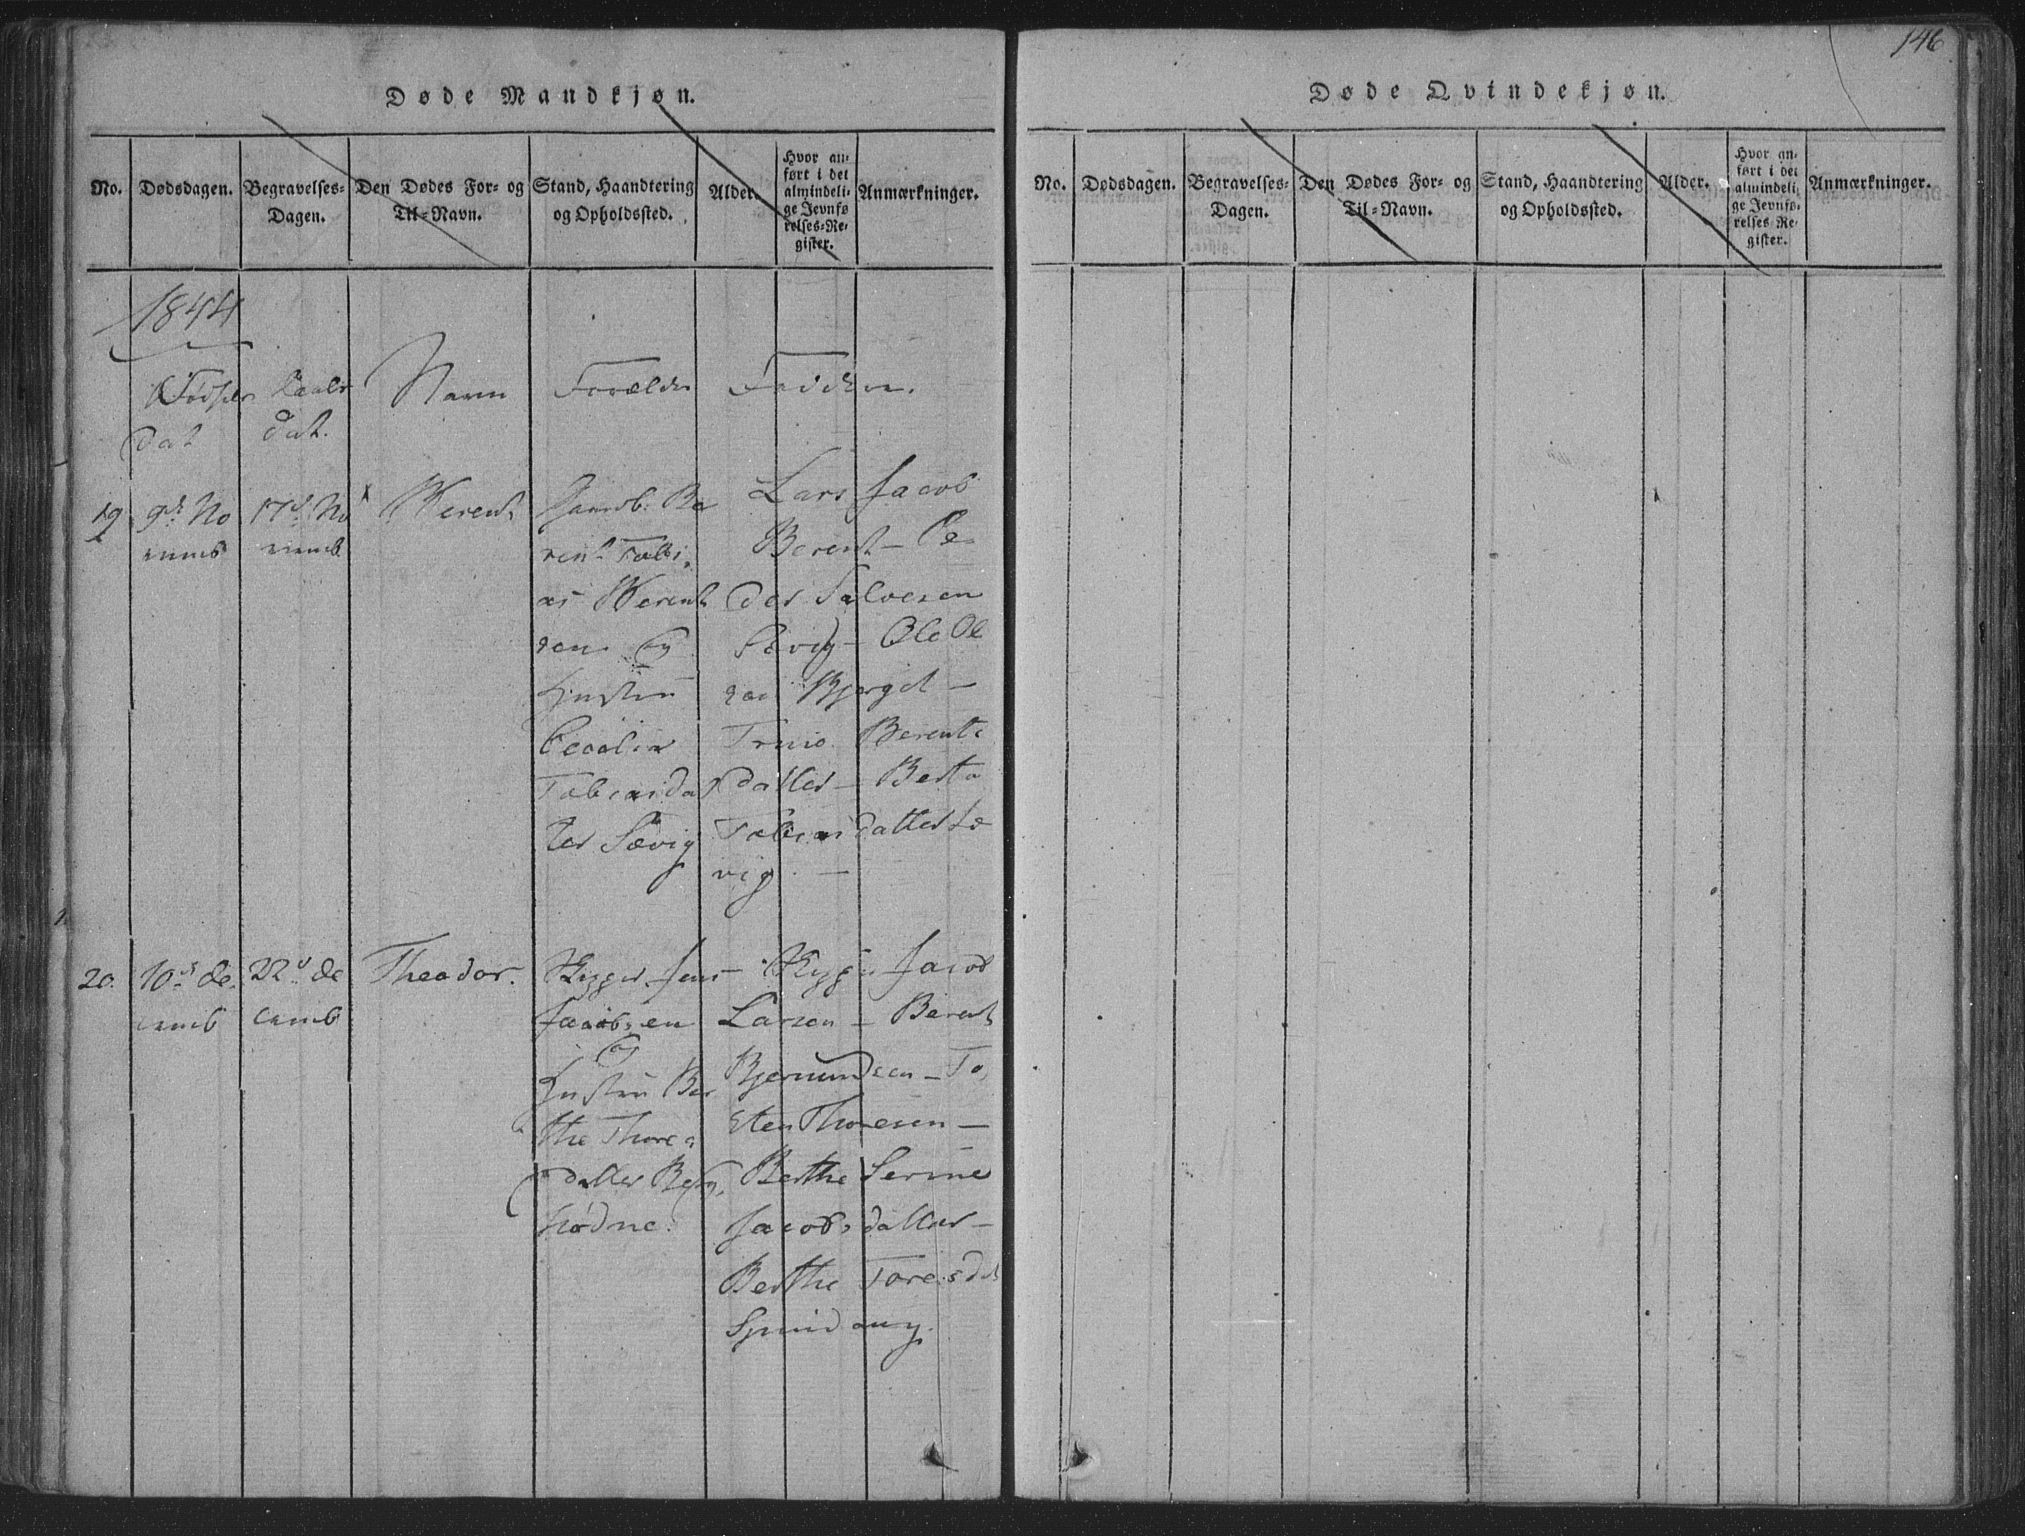 146
Døde Mandkjøn.
No.
Dødsdagen.
Begravelses-
Dagen.
Den Dødes For- og
Til-Navn.
Stand, Haandtering
og Opholdssted.
Alder.
Hvor an-
ført i det
almindeli-
ge Jevnfø-
relses-Re-
gister.
Anmærkninger.
1844
Fødsels
dat
Daabs
dat.
Navn
Forældre
Faddere.
19
9de No
vemb
17d No
vemb
Berent
Jacob Be
rent Tobi
as Berent
sen og
Hustru
Cecilia
Tobiasdat
ter Sævig
Lars Jacob
Berent – Pe
der Salvesen
Sævig – Ole Ol
sen Bjerget –
Trine Berents
datter – Berta
Tobiasdatter Sæ
vig. –
20.
10d De
cemb
22d De
cemb
Theodor.
Jens
Jacobsen
og
Hustru Ber
the Thores
datter
Jacob
Larsen – Berent
Bjernundsen – To
sten Thoresen –
Berthe Serine
Jacobsdatter –
Berthe Toresd
Døde Qvindekjøn.
No.
Dødsdagen.
Begravelses-
Dagen.
Den Dødes For- og
Til-Navn.
Stand, Haandtering
og Opholdssted.
Alder.
Hvor an-
ført i det
almindeli-
ge Jevnfø-
relses-Re-
gister.
Anmærkninger.